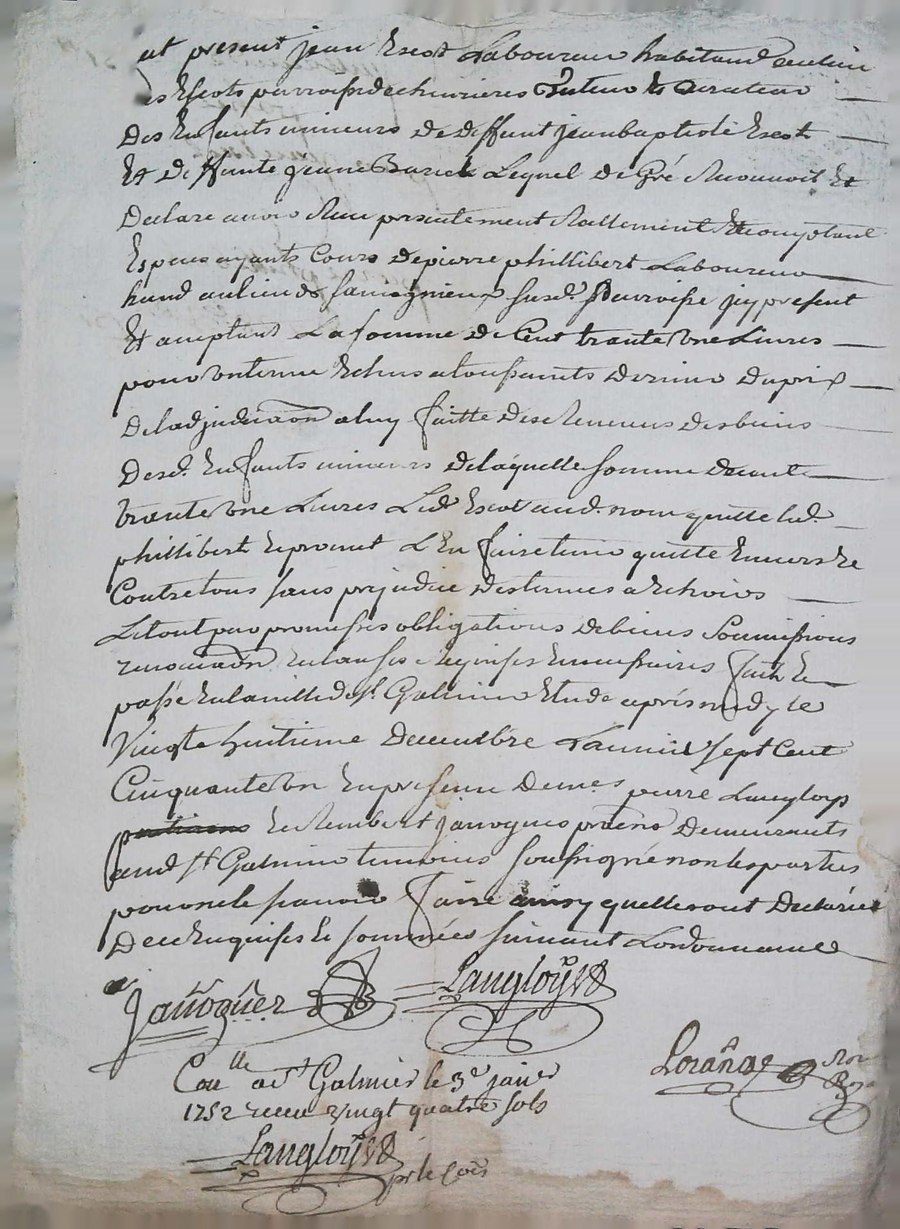 ut present jean Escot Laboureur habitand aulieu
es Escots parroisse de chevrieres Tuteur Et Curateur
Des Enfants mineurs de deffunt jean baptiste Escot
Et deffunte jeanne Lequel de Gré Reconnoit Et
Declare avoir Reçu presentement Reellement Et comptant
Especes ayants Cours de pierre phillibert Laboureur
hand aulieu de susd. parroisse jcy present
Et acceptant La somme de Cent trante Une Livres
pour un terme Echus a toussaints Dernier du prix
De ladjudicaon a luy faitte des Revenus des biens
Desd. Enfants mineurs de laquelle somme de cent
trante Une Livres Led. Escot aud. nom quitte led.
phillibert Et promet L'En faire tenir quitte Envers Et
Contre tous sans prejudice des termes a Echoirs
Le tout par promesses obligations de biens soumissions
renonciaon Et clauses requises Et necessaires fait Et
passé En la ville de st. Galmier Etude apres midy Le
Vingt huitieme Decembre Lan mil sept Cent
Cinquante un En presence de mes pierre Langloys
Et Rembert janoguer praticns Demeurants
aud. st. Galmier temoins soussigné non les parties
pour ne le sçavoir faire ainsy quelles ont Declaré
De ce Enquises Et sommées suivant Lordonnance
Janoguer Langloys
Lorañge No Roy
Coллe a st Galmier le 3e janer
1752 reçu vingt quatre sols
Langloys pr le